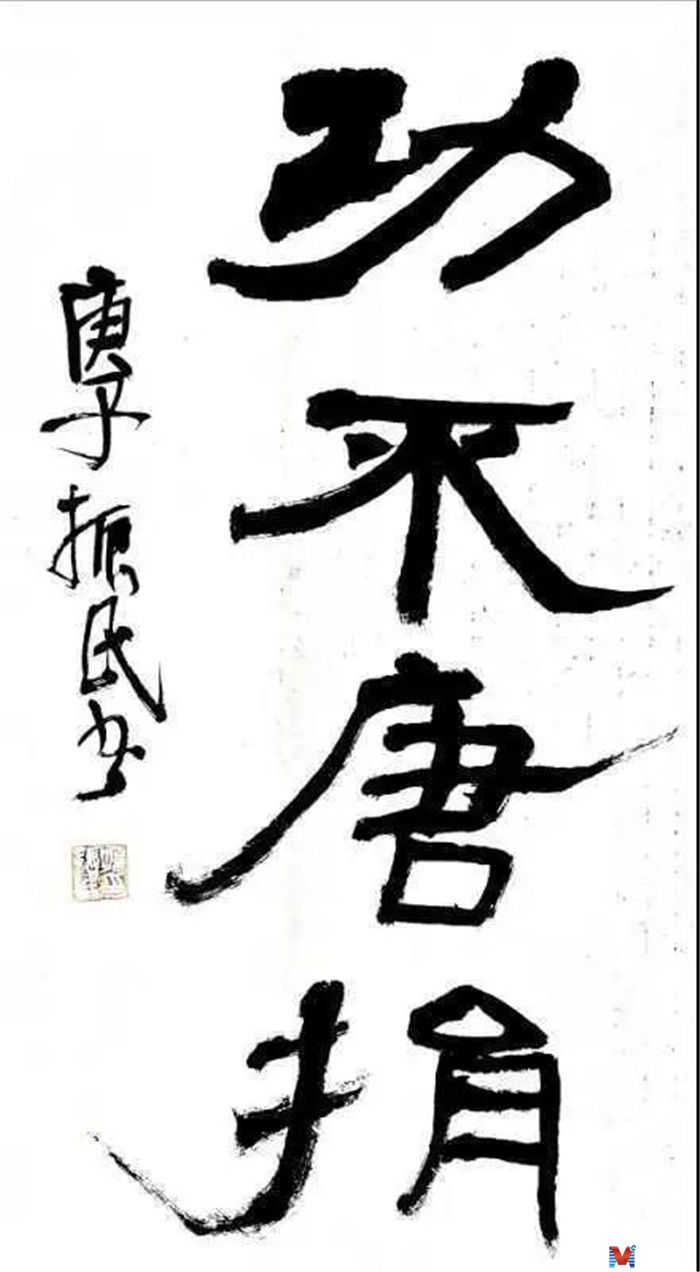 功不唐捐
庚子振民书